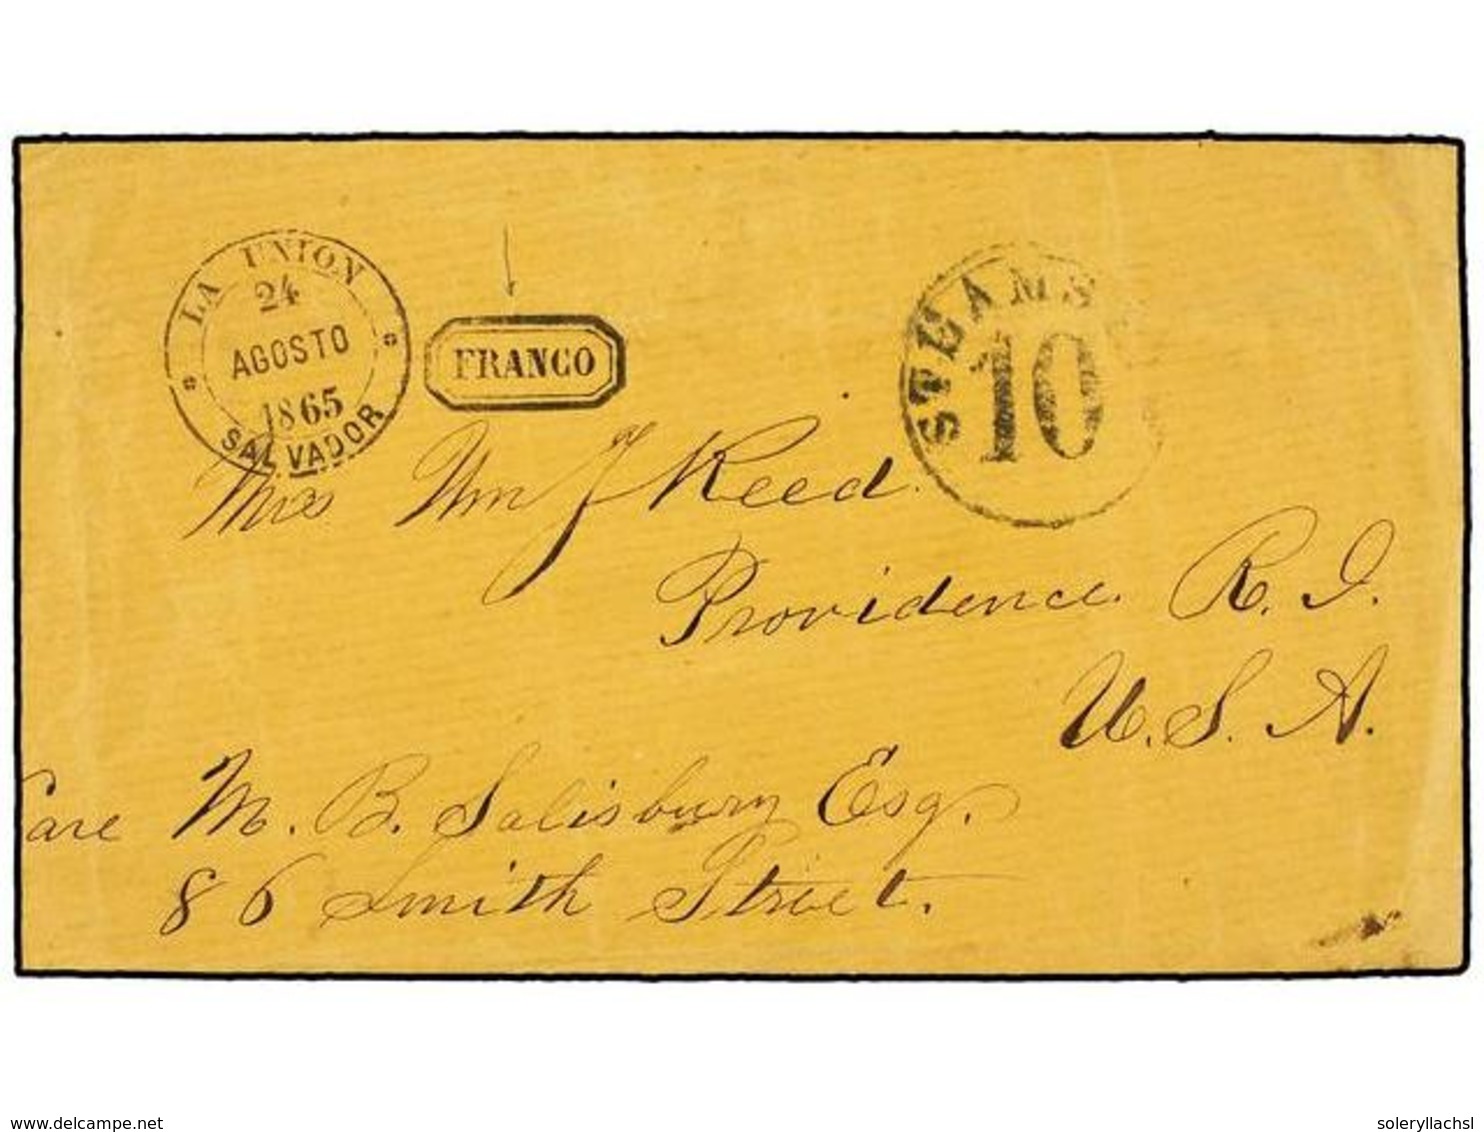 LA UNION
24
AGOSTO
1865
SALVADOR
FRANCO
STEAMS
10
Mrs Wm J Reed.
Providence. R. I.
U. S. A.
Care M. B. Salisbury Esq.
86 Smith Street.
delcampe.net
soleryllachsl